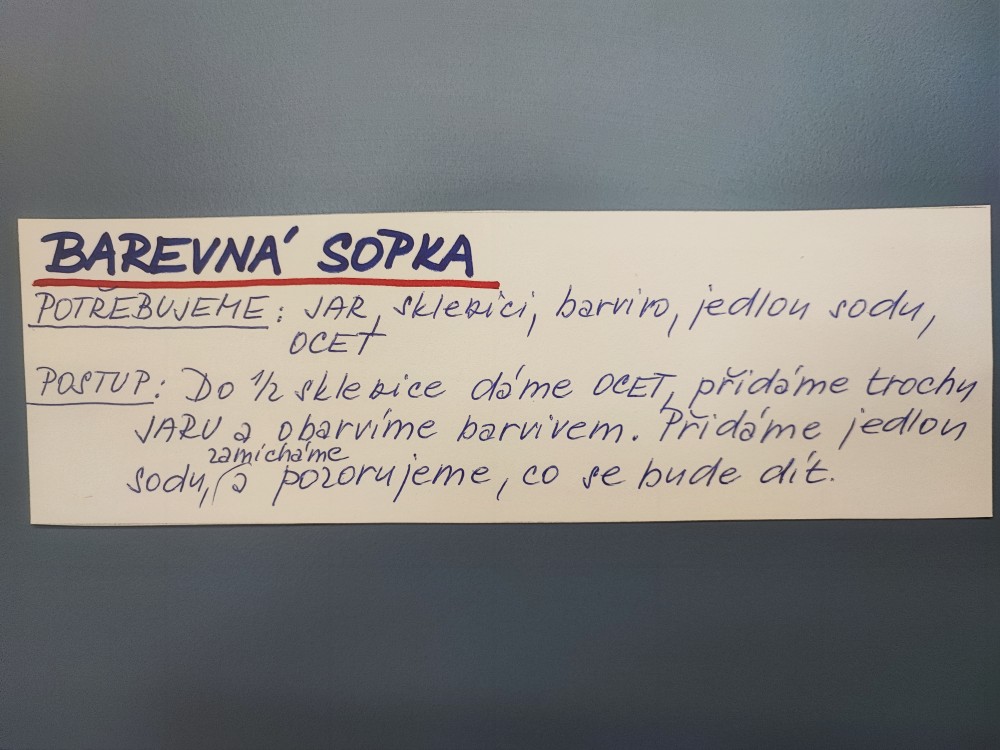 BAREVNÁ SOPKA
POTŘEBUJEME: JAR, sklenici, barvivo, jedlou sodu,
OCET
POSTUP: Do 1/2 sklenice dáme OCET, přidáme trochu
JARU a obarvíme barvivem. Přidáme jedlou
zamícháme
sodu, a pozorujeme, co se bude dít.